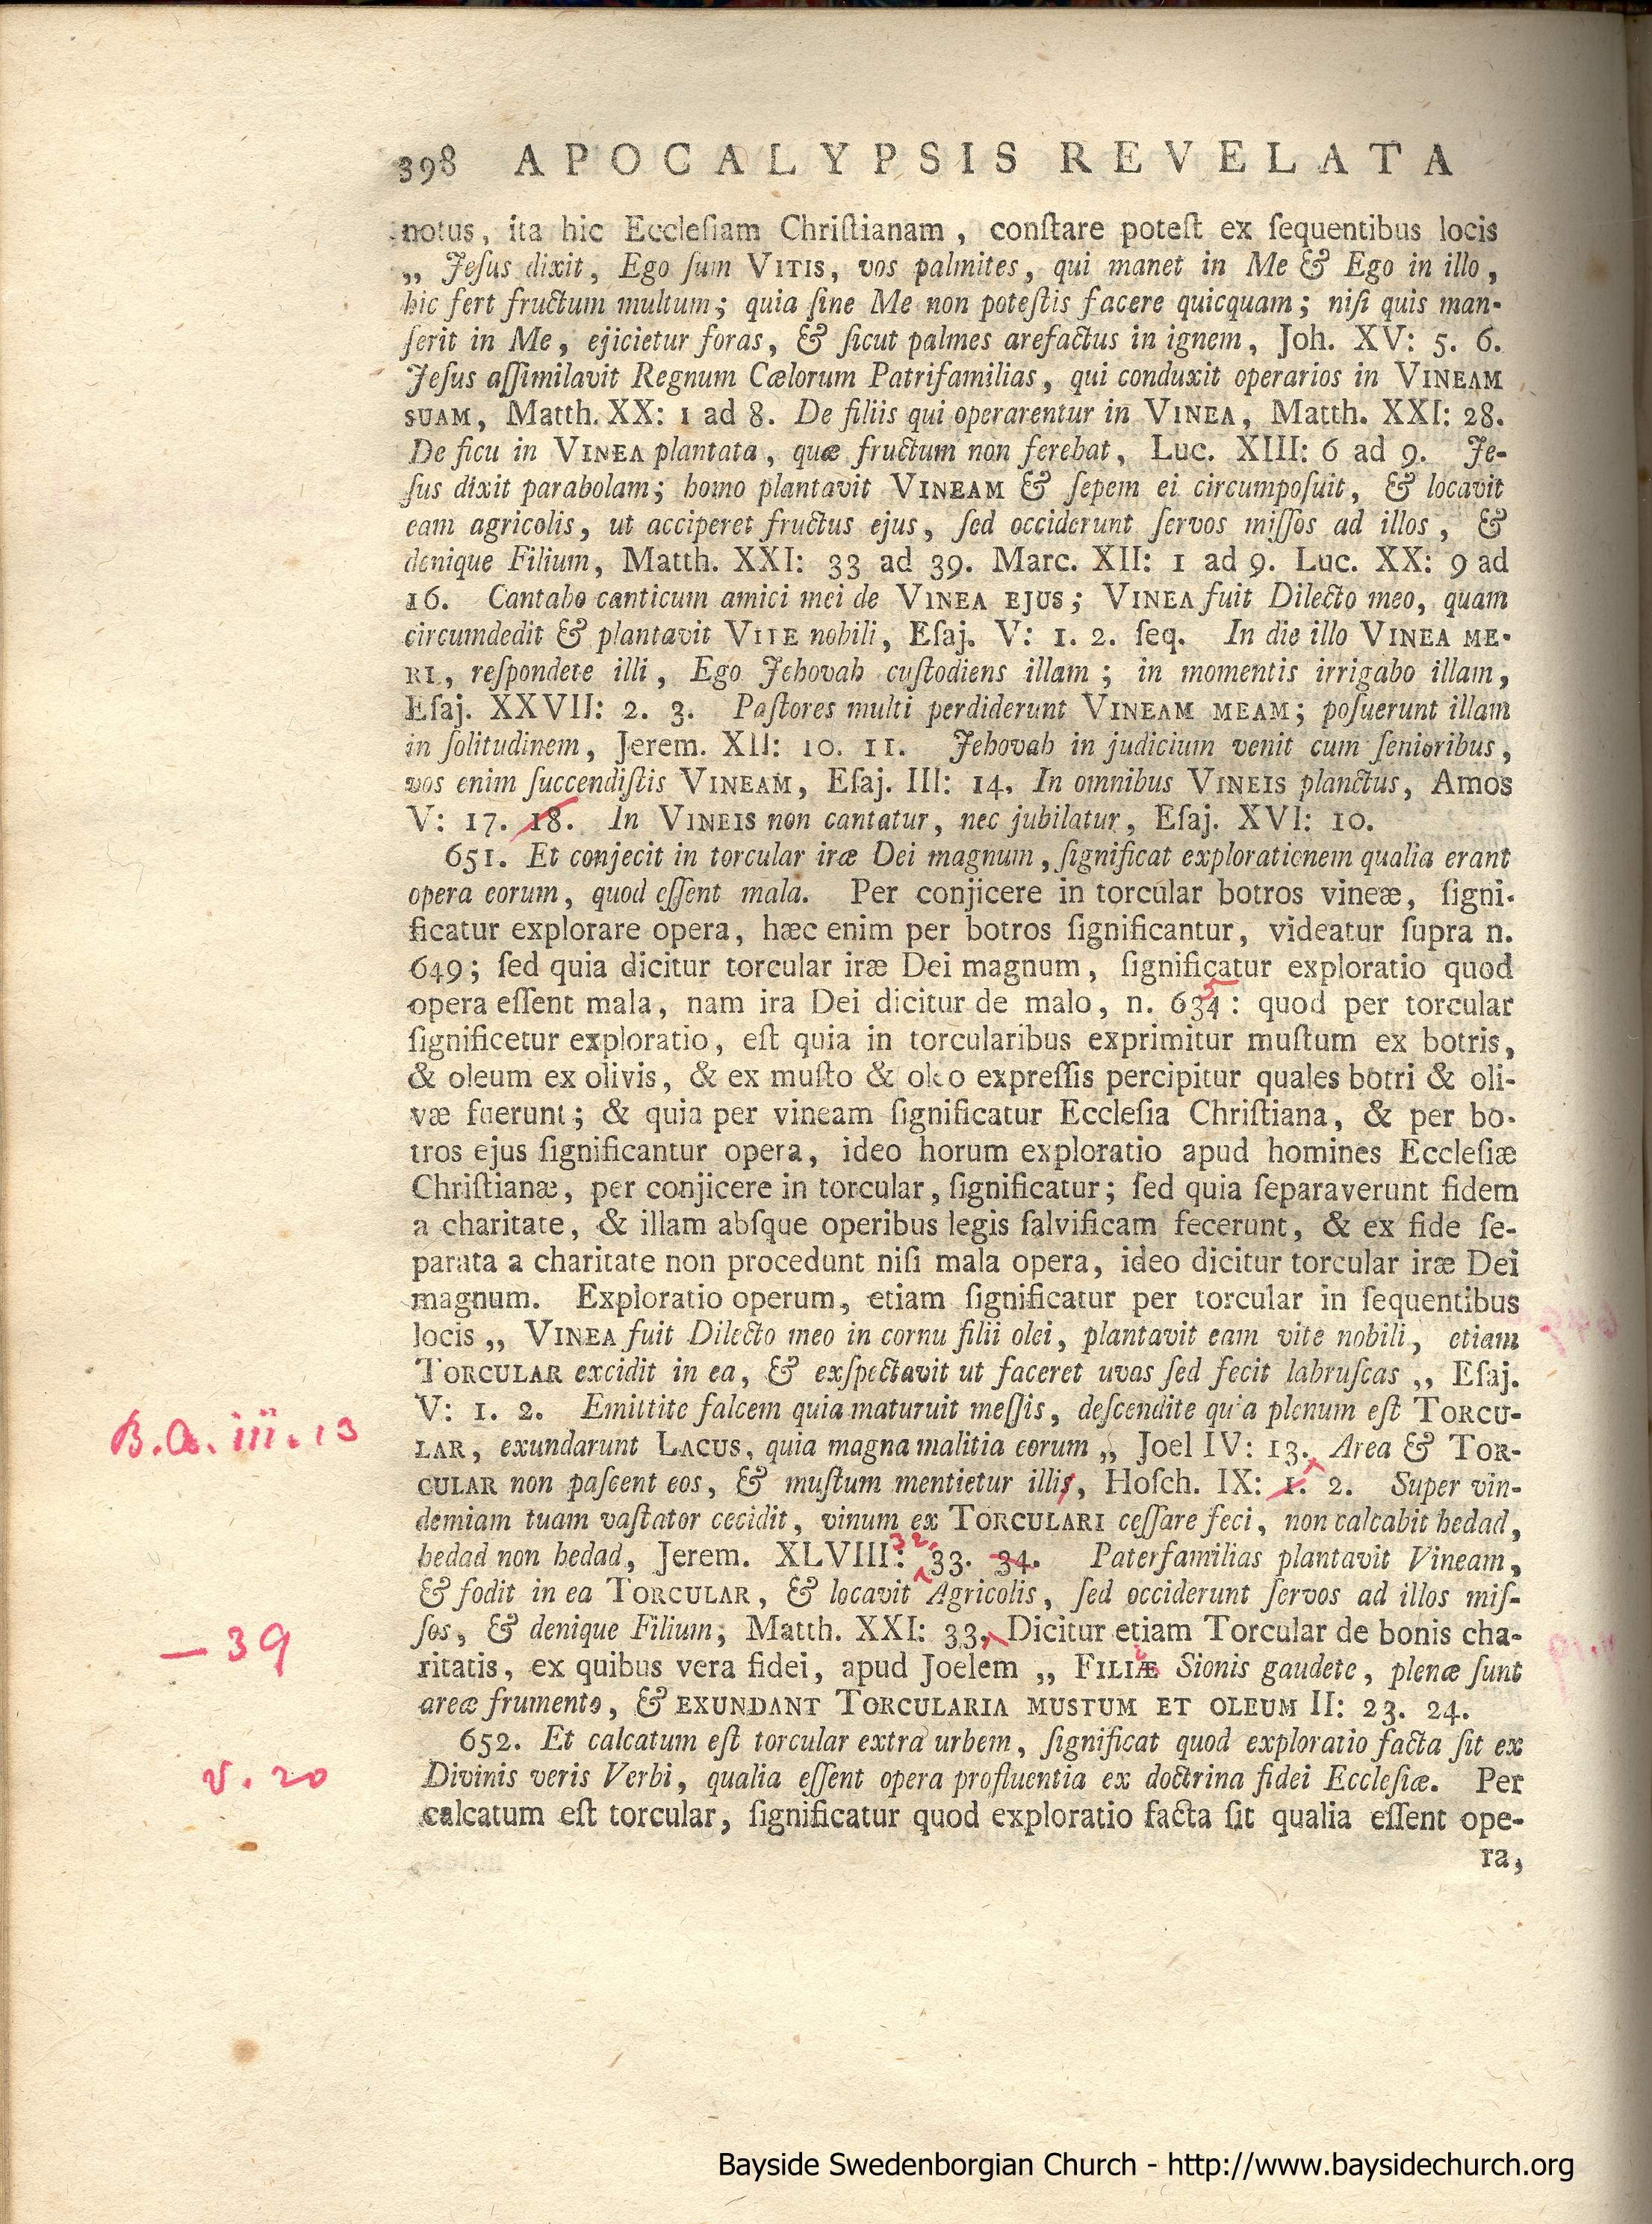 398 APOCALYPSIS REVELATA
notus, ita hic Eccleſiam Chriſtianam, conſtare poteſt ex ſequentibus locis
„ Jeſus dixit, Ego ſum VITIS, vos palmites, qui manet in Me & Ego in illo,
hic fert fructum multum; quia ſine Me non poteſtis facere quicquam; niſi quis man-
ſerit in Me, ejicietur foras, & ſicut palmes arefactus in ignem, Joh. XV: 5. 6.
Jeſus aſſimilavit Regnum Cælorum Patrifamilias, qui conduxit operarios in VINEAM
SUAM, Matth. XX: 1 ad 8. De filiis qui operarentur in VINEA, Matth. XXI: 28.
De ficu in VINEA plantata, quæ fructum non ferebat, Luc. XIII: 6 ad 9. Je-
ſus dixit parabolam; homo plantavit VINEAM & ſepem ei circumpoſuit, & locavit
eam agricolis, ut acciperet fructus ejus, ſed occiderunt ſervos miſſos ad illos, &
denique Filium, Matth. XXI: 33 ad 39. Marc. XII: 1 ad 9. Luc. XX: 9 ad
16. Cantabo canticum amici mei de VINEA EJUS; VINEA fuit Dilecto meo, quam
circumdedit & plantavit VITE nobili, Eſaj. V: 1. 2. ſeq. In die illo VINEA ME-
RI, reſpondete illi, Ego Jehovah cuſtodiens illam; in momentis irrigabo illam,
Eſaj. XXVII: 2. 3. Paſtores multi perdiderunt VINEAM MEAM; poſuerunt illam
in ſolitudinem, Jerem. XII: 10. 11. Jehovah in judicium venit cum ſenioribus,
vos enim ſuccendiſtis VINEAM, Eſaj. III: 14, In omnibus VINEIS planctus, Amos
V: 17. 18. In VINEIS non cantatur, nec jubilatur, Eſaj. XVI: 10.
651. Et conjecit in torcular iræ Dei magnum, ſignificat explorationem qualia erant
opera eorum, quod eſſent mala. Per conjicere in torcular botros vineæ, ſigni-
ficatur explorare opera, hæc enim per botros ſignificantur, videatur ſupra n.
649; ſed quia dicitur torcular iræ Dei magnum, ſignificatur exploratio quod
5
opera eſſent mala, nam ira Dei dicitur de malo, n. 634: quod per torcular
ſignificetur exploratio, eſt quia in torcularibus exprimitur muſtum ex botris,
& oleum ex olivis, & ex muſto & oleo expreſſis percipitur quales botri & oli-
væ fuerunt; & quia per vineam ſignificatur Eccleſia Chriſtiana, & per bo-
tros ejus ſignificantur opera, ideo horum exploratio apud homines Eccleſiæ
Chriſtianæ, per conjicere in torcular, ſignificatur; ſed quia ſeparaverunt fidem
a charitate, & illam abſque operibus legis ſalvificam fecerunt, & ex fide ſe-
parata a charitate non procedunt niſi mala opera, ideo dicitur torcular iræ Dei
magnum. Exploratio operum, etiam ſignificatur per torcular in ſequentibus
locis „ VINEA fuit Dilecto meo in cornu filii olei, plantavit eam vite nobili, etiam
TORCULAR excidit in ea, & exſpectavit ut faceret uvas ſed fecit labruſcas „ Eſaj.
V: 1. 2. Emittite falcem quia maturuit meſſis, deſcendite quia plenum eſt TORCU-
B.A. iii. 13
LAR, exundarunt LACUS, quia magna malitia eorum „ Joel IV: 13, Area & TOR-
CULAR non paſcent eos, & muſtum mentietur illis, Hoſch. IX: 1. 2. Super vin-
demiam tuam vaſtator cecidit, vinum ex TORCULARI ceſſare feci, non calcabit hedad,
32.
hedad non hedad, Jerem. XLVIII: 33. 34. Paterfamilias plantavit Vineam,
& fodit in ea TORCULAR, & locavit Agricolis, ſed occiderunt ſervos ad illos miſ-
— 39
ſos, & denique Filium, Matth. XXI: 33, Dicitur etiam Torcular de bonis cha-
ritatis, ex quibus vera fidei, apud Joelem „ FILIÆ Sionis gaudete, plenæ ſunt
areæ frumento, & EXUNDANT TORCULARIA MUSTUM ET OLEUM II: 23. 24.
652. Et calcatum eſt torcular extra urbem, ſignificat quod exploratio facta ſit ex
v. 20
Divinis veris Verbi, qualia eſſent opera profluentia ex doctrina fidei Eccleſiæ. Per
calcatum eſt torcular, ſignificatur quod exploratio facta ſit qualia eſſent ope-
ra,
Bayside Swedenborgian Church - http://www.baysidechurch.org